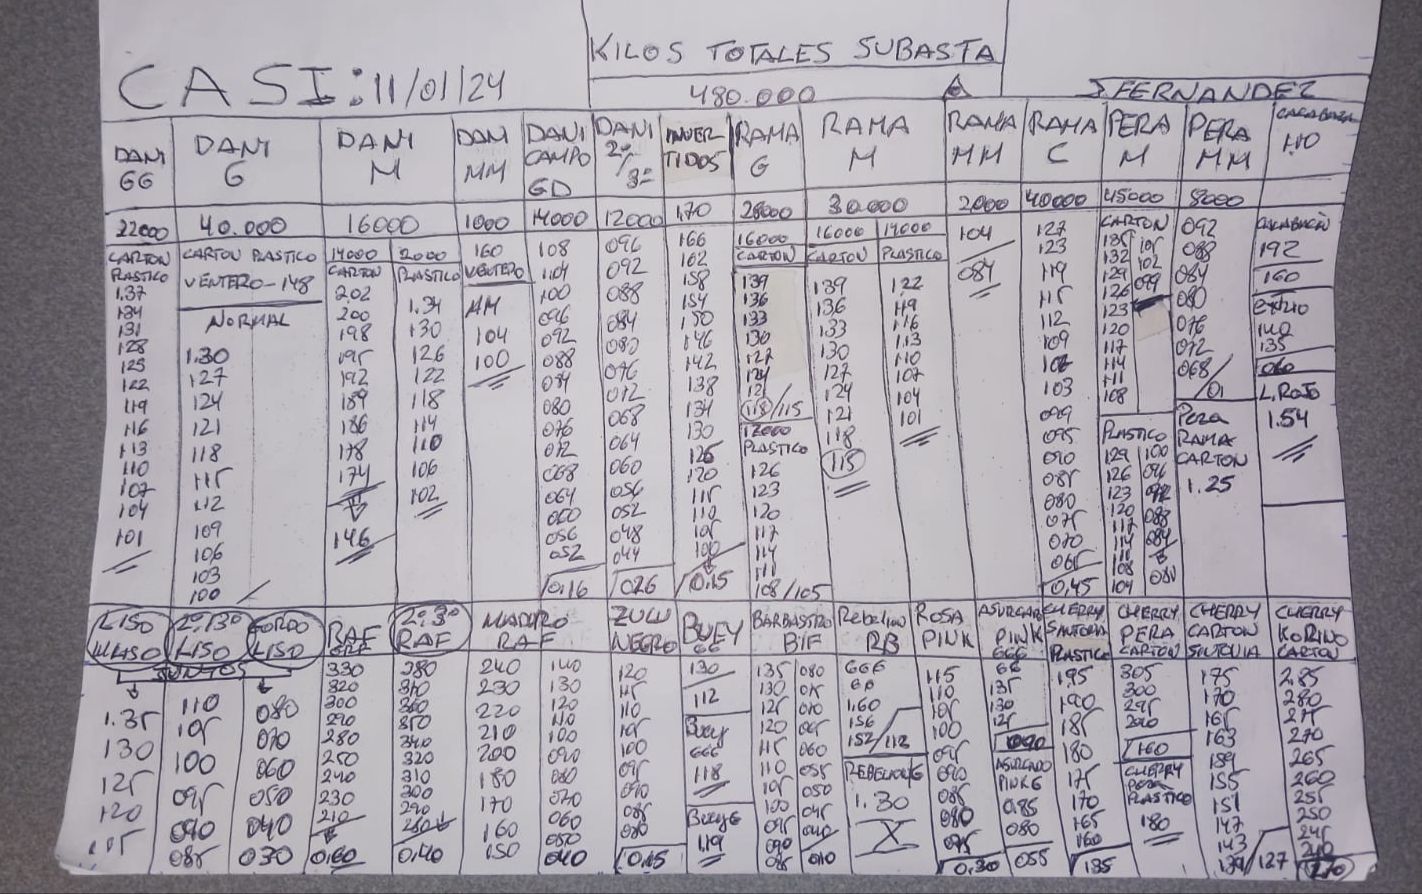 KILOS TOTALES SUBASTA
CASI: 11/01/24
480.000
FERNANDEZ
DANI GG
DANI G
DANI M
DANI MM
DANI CAMPO GD
DANI 2ª/3ª
INVERTIDOS
RAMA G
RAMA M
RAMA MM
RAMA C
PERA M
PERA MM
22000
40.000
16000
1000
14000
12000
1,70
28000
30.000
2000
40000
45000
5000
CARTON
PLASTICO
1.37
134
131
128
125
122
119
116
113
110
107
104
101
CARTON PLASTICO
VENTERO-148
NORMAL
1.30
127
124
121
118
115
112
109
106
103
100
14000
CARTON
202
200
198
195
192
189
186
178
174
146
2000
PLASTICO
1.34
130
126
122
118
114
110
106
102
160
VENTERO
MM
104
100
108
104
100
096
092
088
084
080
076
072
068
064
060
056
052
0.16
096
092
088
084
080
076
072
068
064
060
056
052
048
044
026
166
162
158
154
150
146
142
138
134
130
125
120
115
110
105
100
0.15
16000
CARTON
139
136
133
130
127
124
121
118/115
12000
PLASTICO
126
123
120
117
114
111
108/105
16000
CARTON
139
136
133
130
127
124
121
118
115
14000
PLASTICO
122
119
116
113
110
107
104
101
104
084
127
123
119
115
112
109
106
103
099
095
090
085
080
075
070
065
0,45
CARTON
135 105
132 102
129 099
126
123
120
117
114
111
108
PLASTICO
129 100
126 096
123 092
120 088
117 084
114
111
108 080
104
092
088
084
080
076
072
068
/01
PERA
RAMA
CARTON
1.25
192
160
EXTRIO
140
135
060
L.ROJO
1.54
LISO
M LISO
2ª/3ª
LISO
GORDO
LISO
JUNTOS
1.35
130
125
120
115
110
105
100
095
090
085
080
070
060
050
040
030
RAF
330
320
300
290
280
250
240
230
210
0,60
2ª,3ª
RAF
380
370
360
350
340
320
310
300
290
260
0,40
MADURO
RAF
240 140
230 130
220 120
210 110
200 100
090
180 080
170 070
160 060
050
150 040
ZULU
NEGRO
120
115
110
105
100
095
090
085
080
0.15
BUEY
GG
130
112
Buey
GGG
118
Buey G
1.19
BARBASTRO
BIF
135 080
130 075
125 070
120 065
115 060
110 055
105 050
100 045
095 040
090
085 010
Rebelion
RB
GGG
1.60
156
152/112
REBELION G
1.30
X
ROSA
PINK
115
110
105
100
095
090
085
080
075
0.30
ASURCADO
PINK
GGG
135
130
125
ASURCADO
PINK G
0.85
080
055
CHERRY
SANTORIA
PLASTICO
195
190
185
180
175
170
165
160
135
CHERRY
PERA
CARTON
305
300
295
290
160
CHERRY
PERA
PLASTICO
180
CHERRY
CARTON
SINTONIA
175
170
165
163
159
155
151
147
143
139/127
CHERRY
KORINO
CARTON
2.85
280
275
270
265
260
255
250
245
240